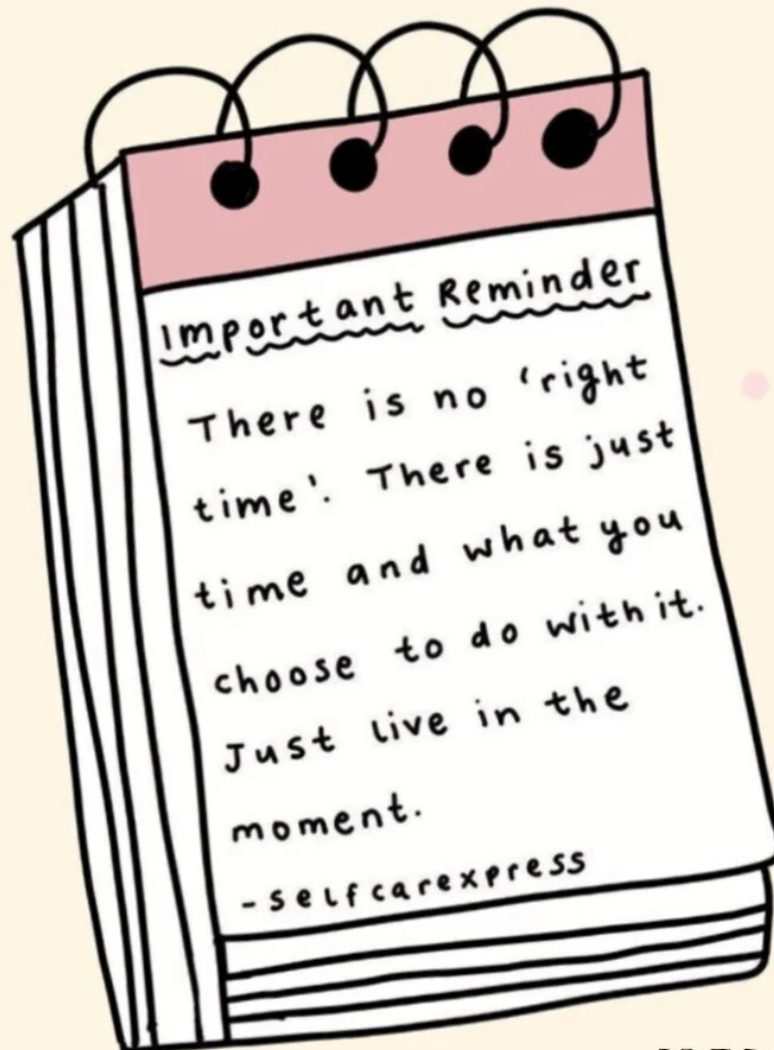 Important Reminder
There is no 'right
time'. There is just
time and what you
choose to do with it.
Just live in the
moment.
-selfcarexpress